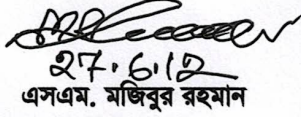 27.6.12
এসএম. মজিবুর রহমান